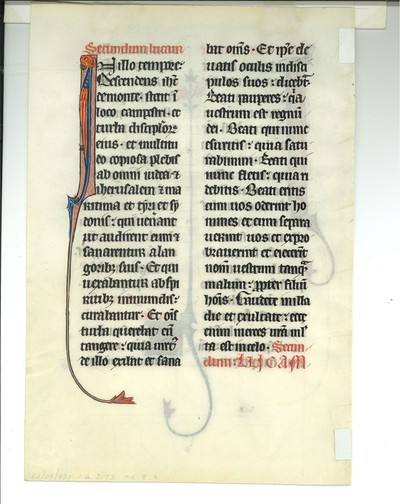 Secundum lucam
In illo tempore
descendens ihc
de monte · stetit ī
loco campestri · et
turba discipulor
eius · et multitu
do copiosa plebis
ab omni iudea · &
iherusalem & ma
ritima et tyri et sy
donis : qui uenerant
ut audirent eum &
sanarentur a lan
goribus suis · Et qui
uexabantur ab spi
ritibus inmundis :
curabantur · Et om̄s
turba querebat eū
tangere : quia uirt'
de illo exibat et sana
bat om̄s · Et ip̄e ele
uatis oculis in disci
pulos suos : dicebat ·
Beati pauperes : quia
uestrum est regnū
dei · Beati qui nunc
esuritis : quia satu
rabimini · Beati qui
nunc fletis : quia ri
debitis · Beati eritis
cum uos oderint ho
mines et cum separa
uerint uos et expro
brauerint et eiecerint
nom̄ uestrum tanq
malum : ꝓpter filiū
hoīs · Gaudete in illa
die et exultate : ecce
enim merces ura ml
ta est in celo · Secun
dum LUCAM